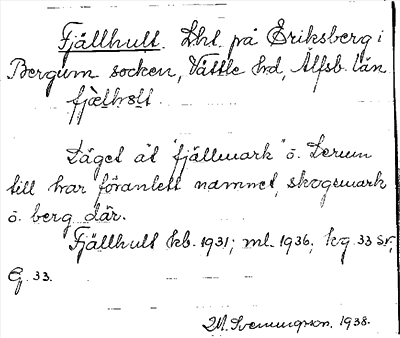 Fjällhult. Lht. på Eriksberg i
Bergum socken, Vättle hd, Älfsb. län
fjælhɵlt
Läget åt "fjällmark" ö. Lerum
till har föranlett namnet, skogsmark
o. berg där.
Fjällhult kb. 1931; ml. 1936; kg 33 sv;
G. 33.
M. Svenungson. 1938.